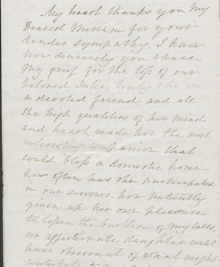 My heart thanks you My
Dearest Miriam for your
tender sympathy. I know
how sincerely you shared
My grief for the loss of our
beloved
a devoted friend and all
the high qualities of her mind
and heart, made her the most
interesting companion that
could bless a domestic home
how often has she participated
in our sorrows how patiently
given up her own pleasures
to lessen the burthen of my
an affectionate daughter could
have